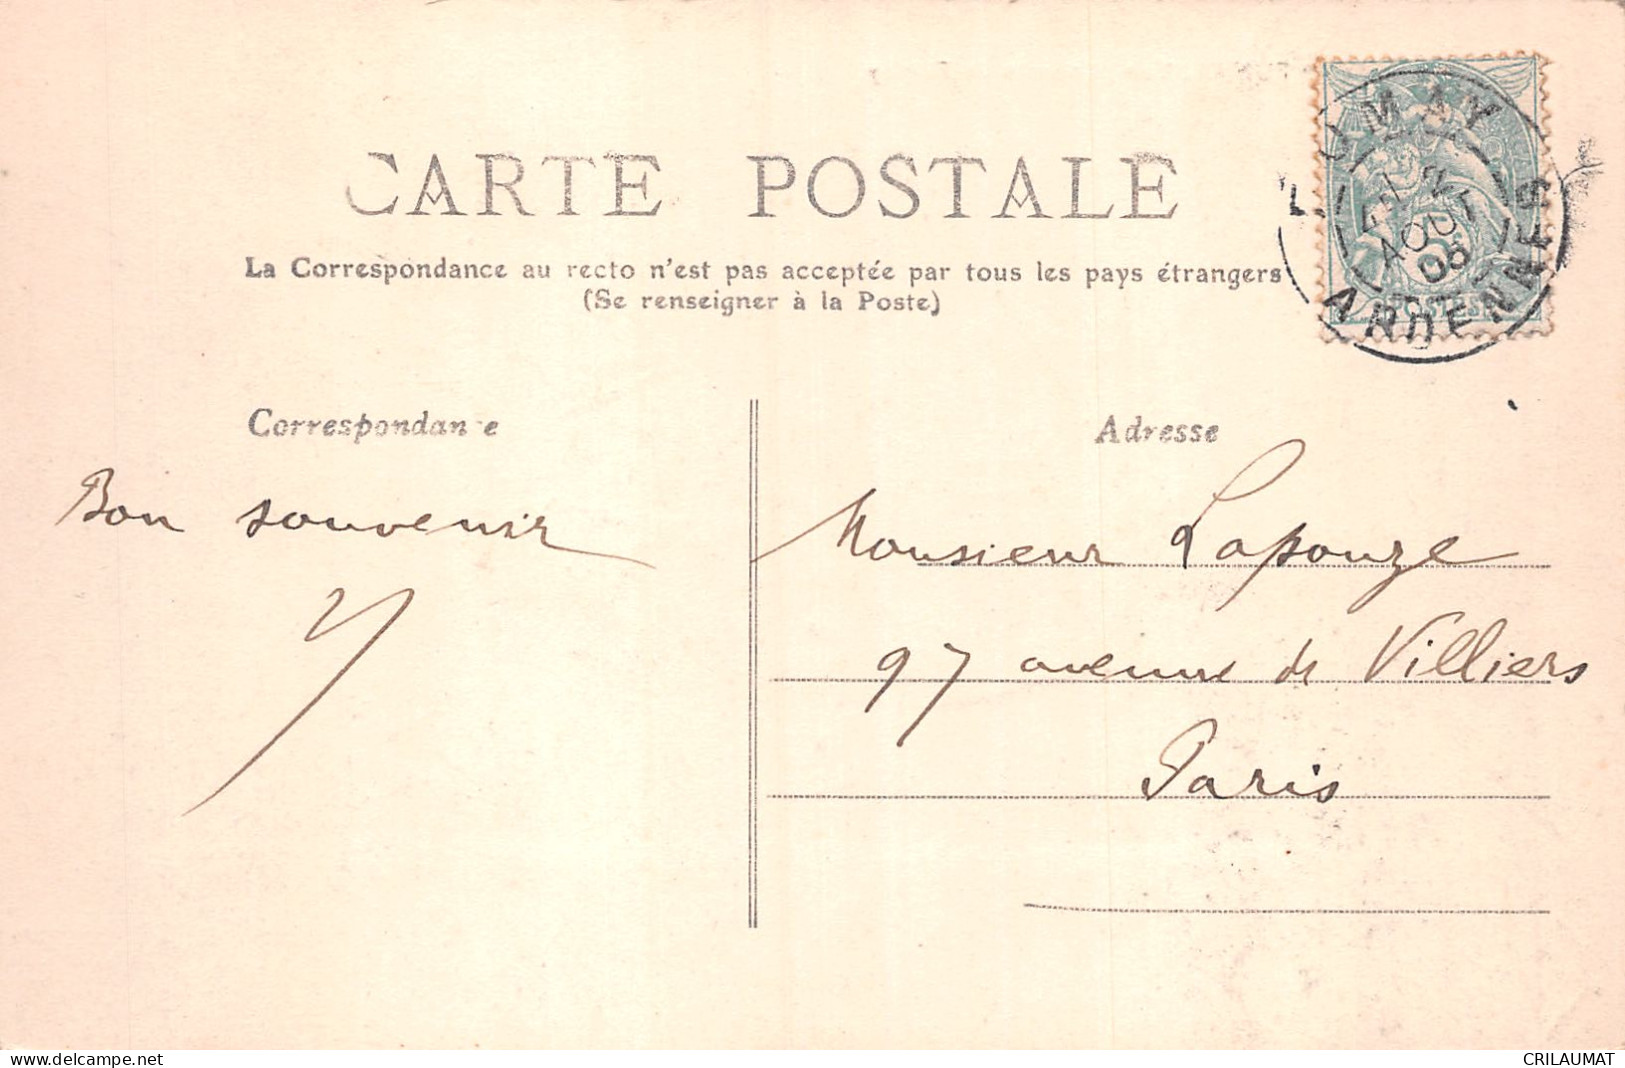 CARTE POSTALE
La Correspondance au recto n'est pas acceptée par tous les pays étrangers
(Se renseigner à la Poste)
AOUT
06
ARDENNES
POSTES
Correspondance
Adresse
Bon souvenir
Monsieur Lapouze
97 avenue de Villiers
Paris
CRILAUMAT